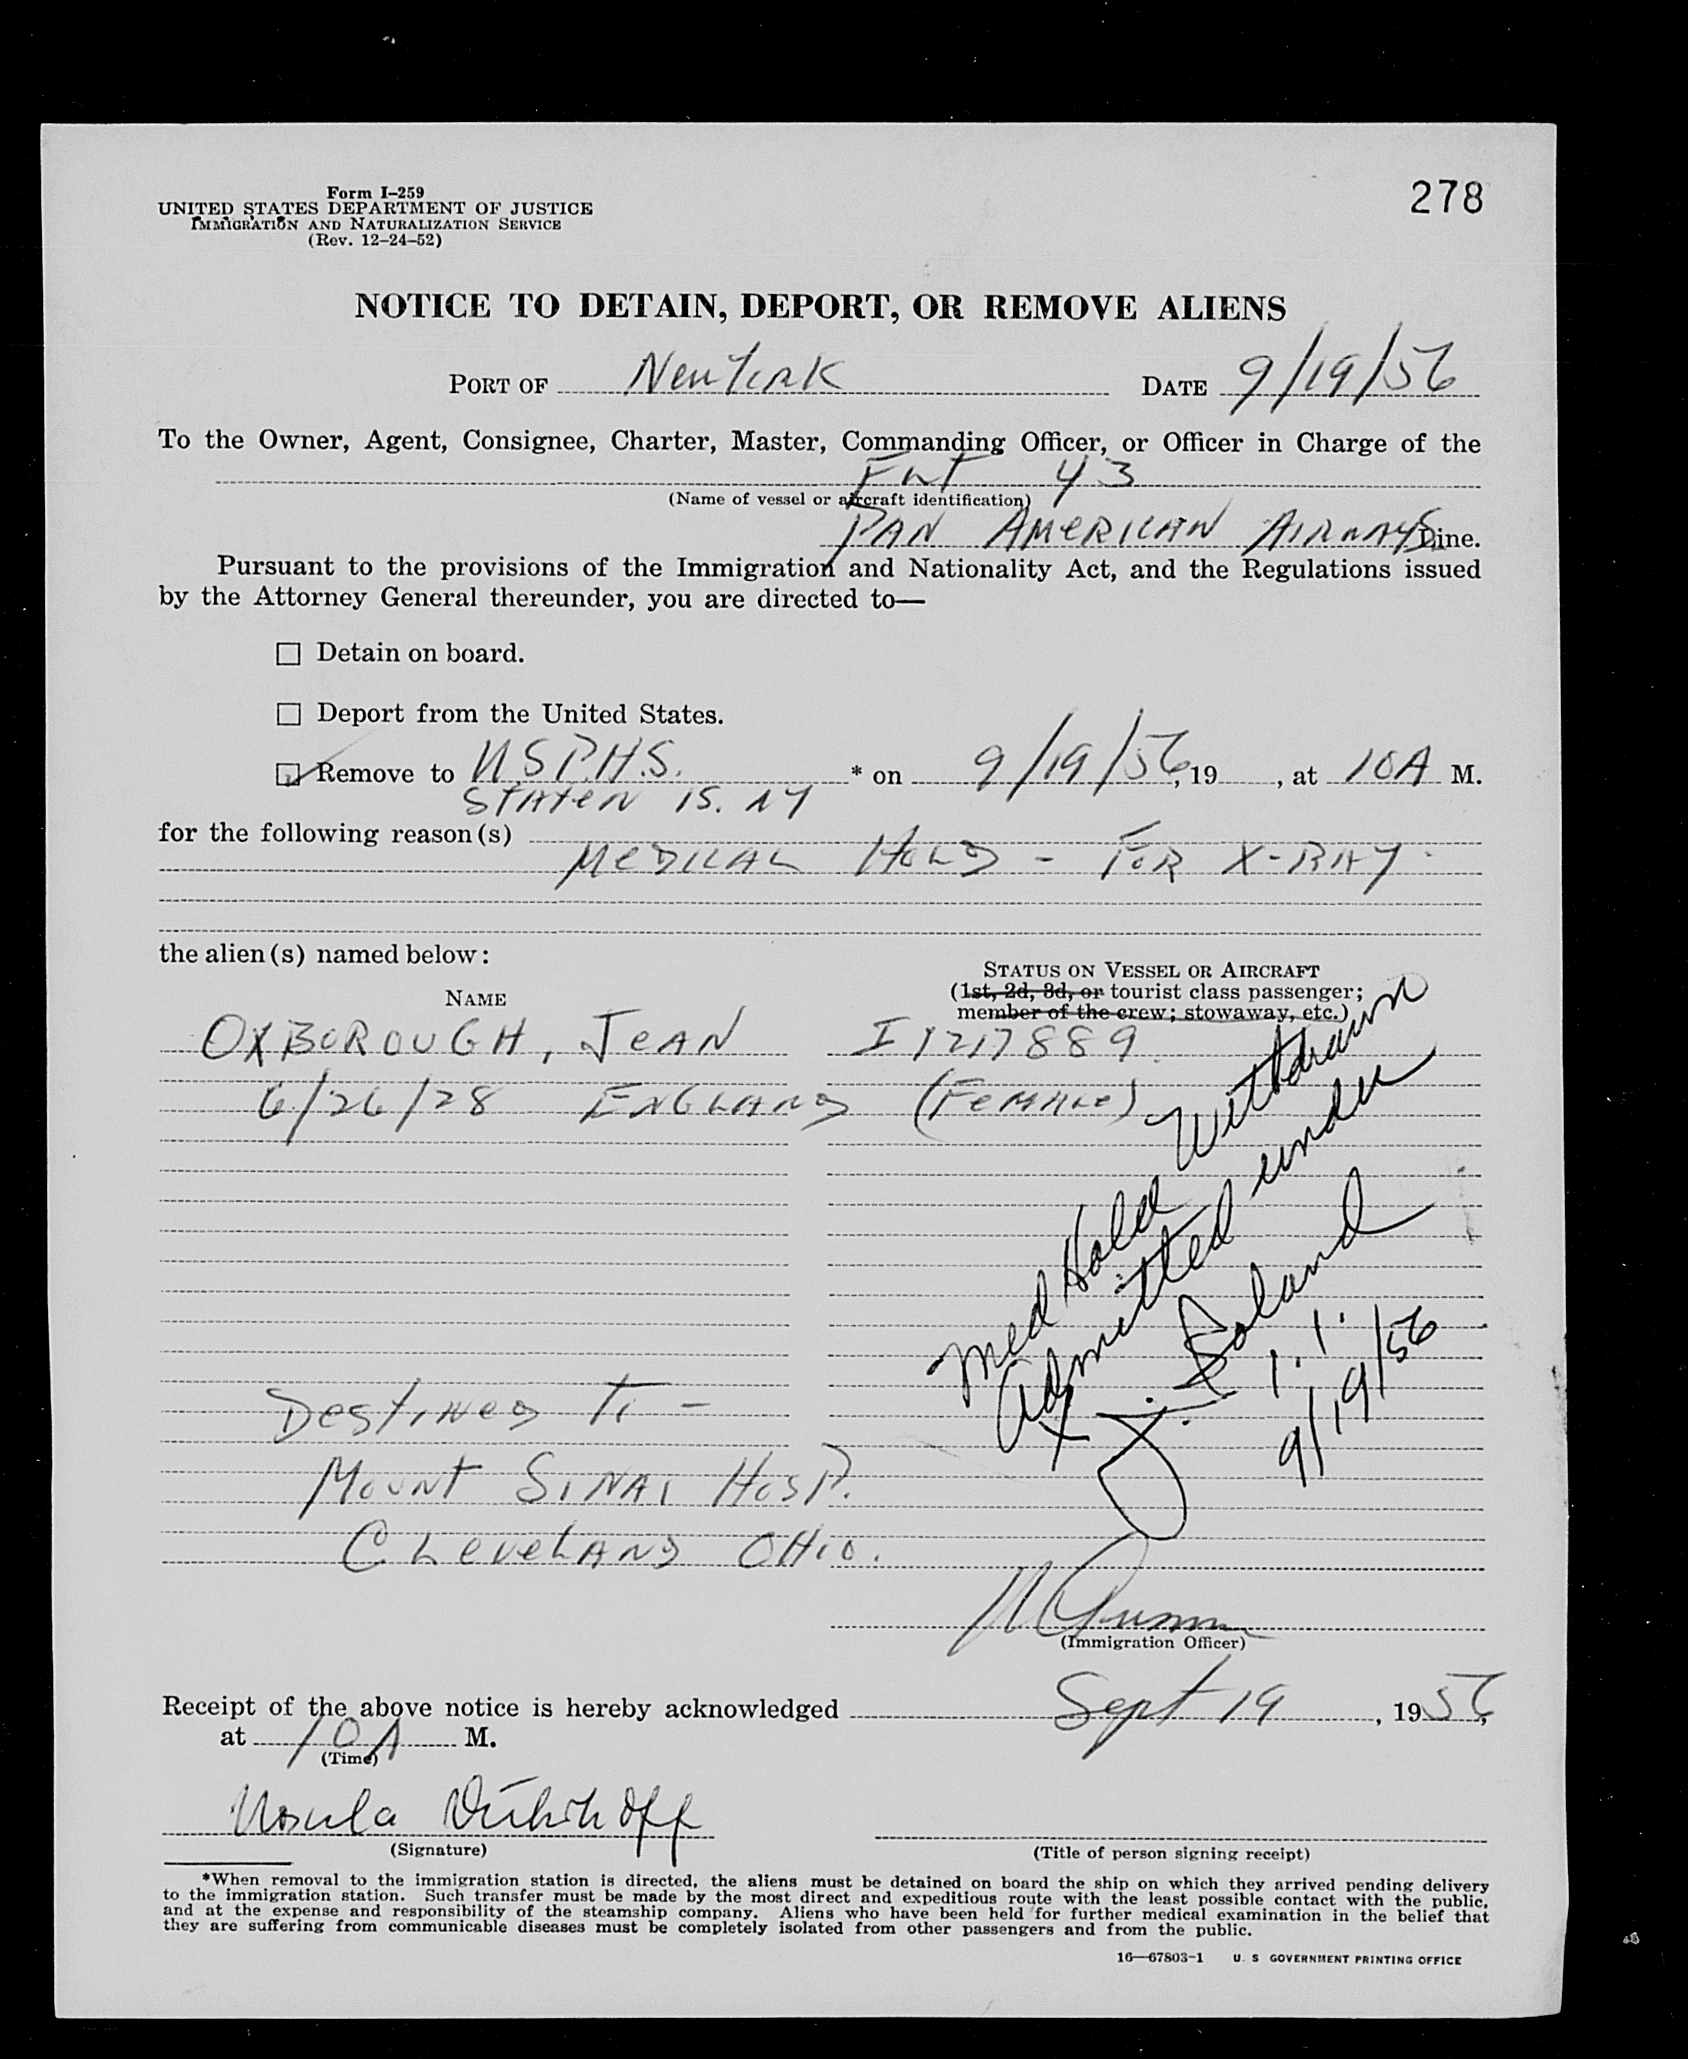 Form I-259
UNITED STATES DEPARTMENT OF JUSTICE
IMMIGRATION AND NATURALIZATION SERVICE
(Rev. 12-24-52)
278
NOTICE TO DETAIN, DEPORT, OR REMOVE ALIENS
PORT OF New York DATE 9/19/56
To the Owner, Agent, Consignee, Charter, Master, Commanding Officer, or Officer in Charge of the
43
(Name of vessel or aircraft identification)
PAN AMERICAN AIRWAYS Line.
Pursuant to the provisions of the Immigration and Nationality Act, and the Regulations issued
by the Attorney General thereunder, you are directed to—
Detain on board.
Deport from the United States.
Remove to U.S.P.H.S. * on 9/19/56, 19 , at 10A M.
STATEN IS. NY
for the following reason(s)
MEDICAL HOLD - FOR X-RAY
the alien(s) named below:
STATUS ON VESSEL OR AIRCRAFT
NAME
(1st, 2d, 3d, or tourist class passenger;
member of the crew; stowaway, etc.)
OXBOROUGH, JEAN I 1217889
6/26/28 ENGLAND (FEMALE)
Med Hold Withdrawn
Admitted under
9/19/56
DESTINED TO -
MOUNT SINAI HOSP.
CLEVELAND OHIO.
(Immigration Officer)
Receipt of the above notice is hereby acknowledged Sept 19, 1956,
at 10A M.
(Time)
Ursula
(Signature)
(Title of person signing receipt)
*When removal to the immigration station is directed, the aliens must be detained on board the ship on which they arrived pending delivery
to the immigration station. Such transfer must be made by the most direct and expeditious route with the least possible contact with the public,
and at the expense and responsibility of the steamship company. Aliens who have been held for further medical examination in the belief that
they are suffering from communicable diseases must be completely isolated from other passengers and from the public.
16—67803-1 U. S GOVERNMENT PRINTING OFFICE